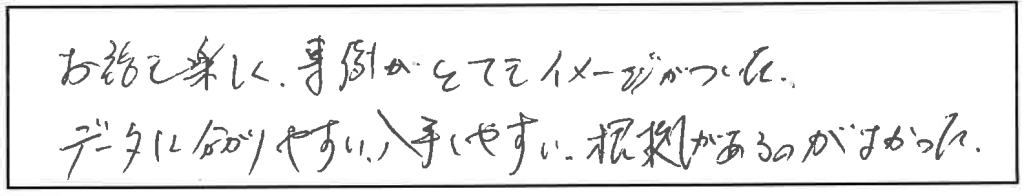 お話も楽しく、事例がとてもイメージがついた。
データに分かりやすい、入手しやすい。根拠があるのがよかった。